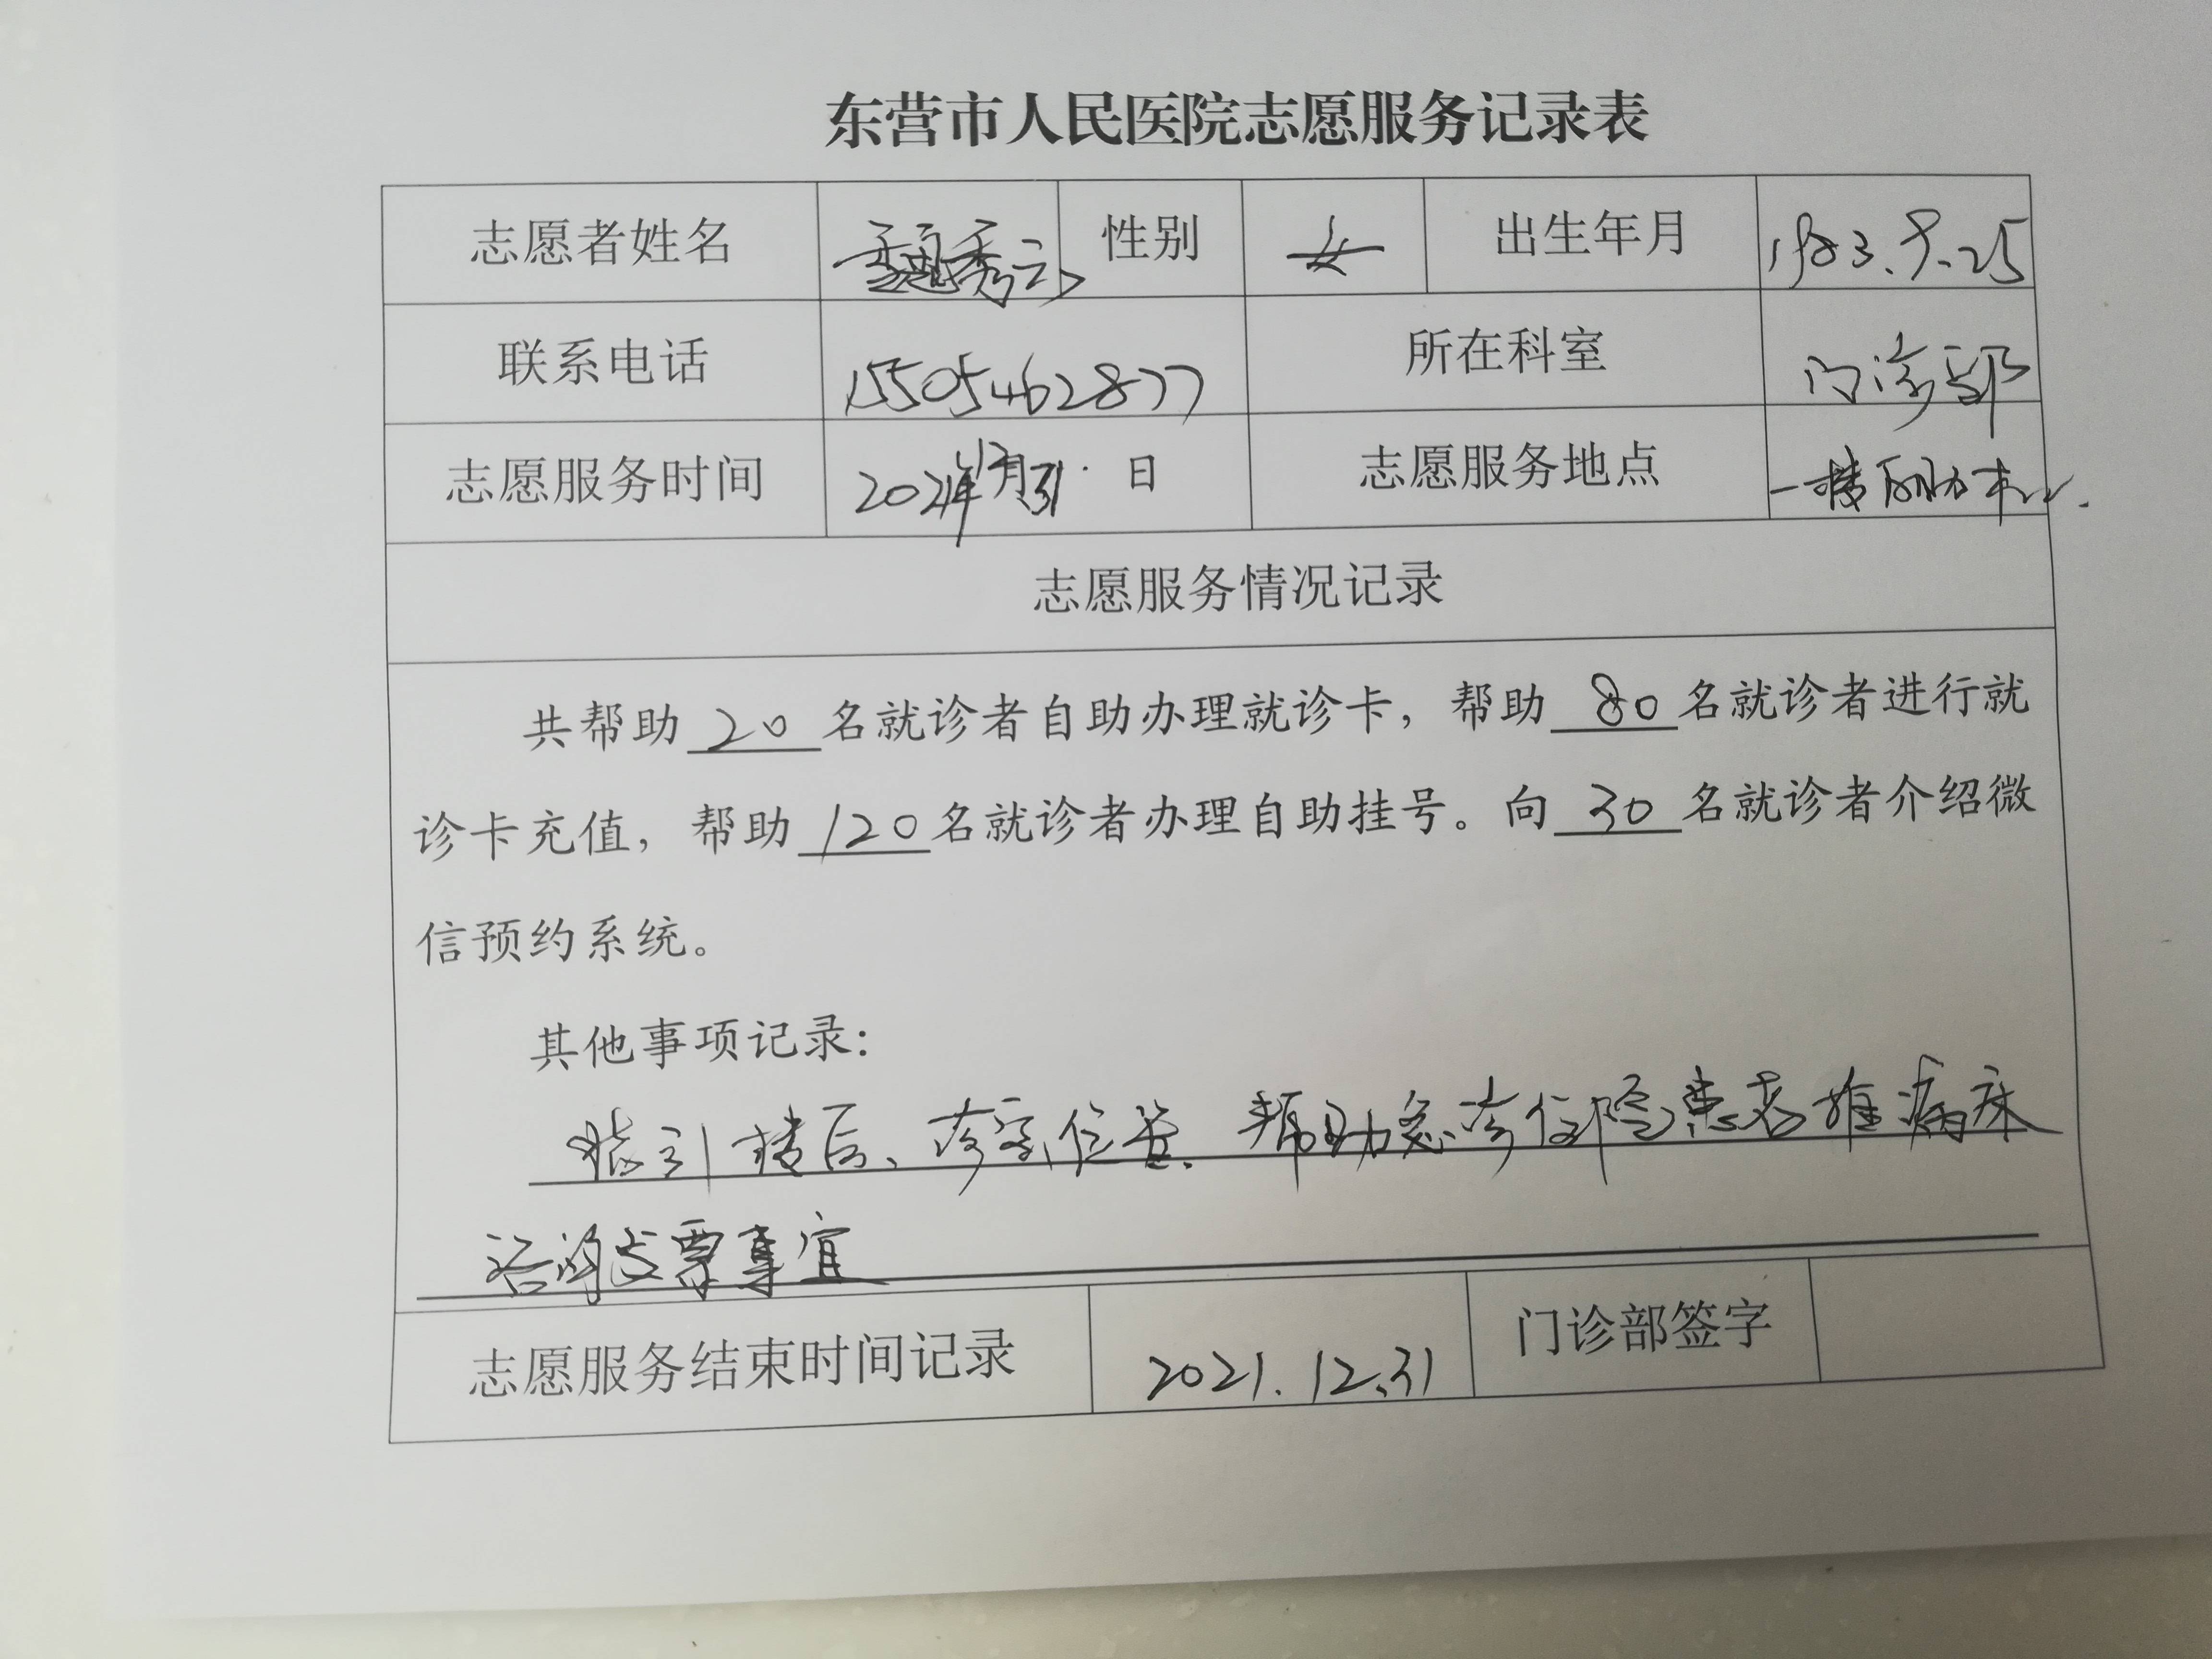 东营市人民医院志愿服务记录表
志愿者姓名 秀云 性别 女 出生年月 1983.9.25
联系电话 15505462877 所在科室 门诊部
志愿服务时间 2021年12月31日 志愿服务地点 一楼自助机
志愿服务情况记录
共帮助 20 名就诊者自助办理就诊卡，帮助 80 名就诊者进行就
诊卡充值，帮助 120 名就诊者办理自助挂号。向 30 名就诊者介绍微
信预约系统。
其他事项记录：
指引楼层、诊室位置、帮助急诊住院患者推病床
咨询发票事宜
志愿服务结束时间记录 2021.12.31 门诊部签字